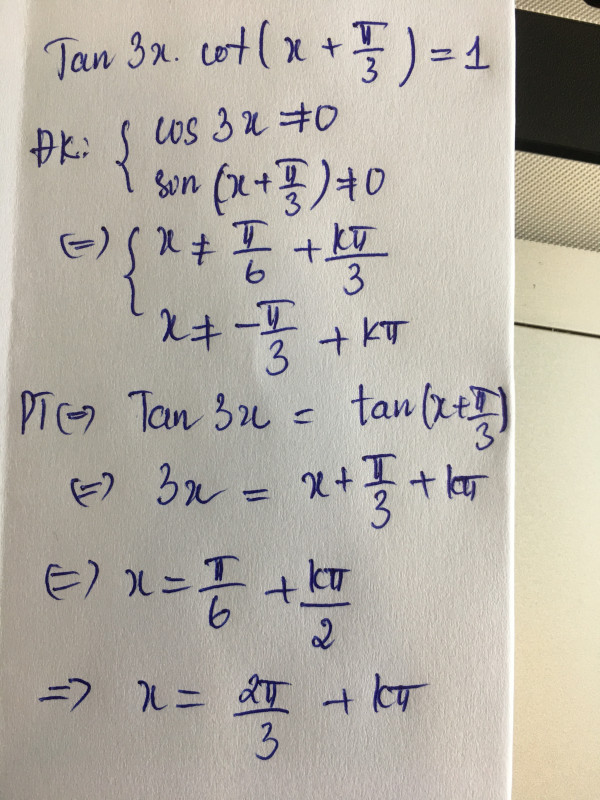 Tan 3x. cot(x + π/3) = 1
ĐK: { cos 3x ≠ 0
sin (x + π/3) ≠ 0
(=) { x ≠ π/6 + kπ/3
x ≠ -π/3 + kπ
PT (=) Tan 3x = tan(x+π/3)
(=) 3x = x + π/3 + kπ
(=) x = π/6 + kπ/2
=> x = 2π/3 + kπ